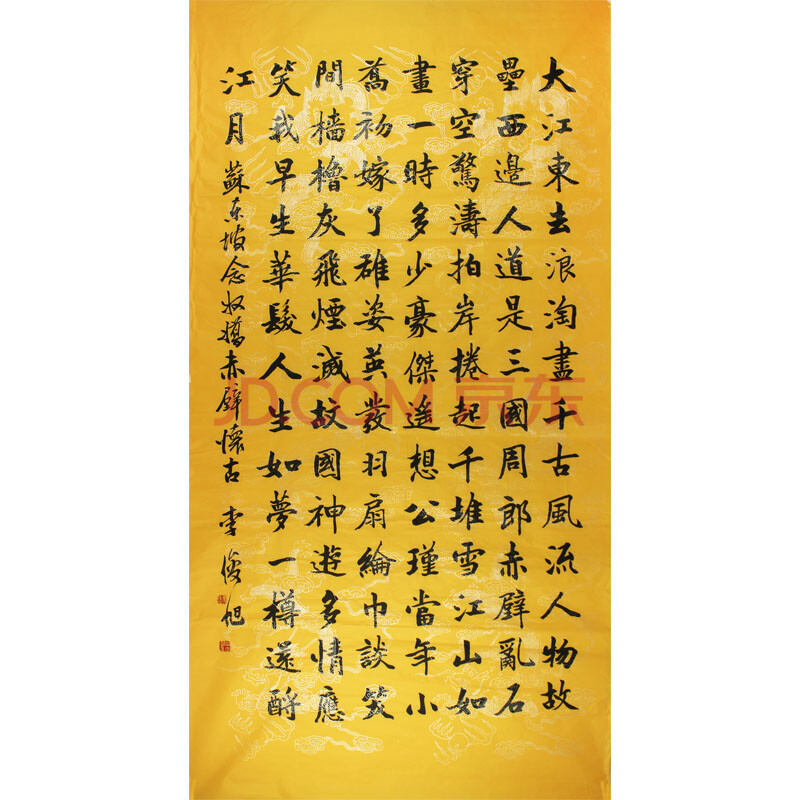 大江東去浪淘盡千古風流人物故
壘西邊人道是三國周郎赤壁亂石
穿空驚濤拍岸捲起千堆雪江山如
畫一時多少豪傑遙想公瑾當年小
喬初嫁了雄姿英發羽扇綸巾談笑
間檣櫓灰飛煙滅故國神遊多情應
笑我早生華髮人生如夢一樽還酹
江月 蘇东坡念奴嬌赤壁懷古 李俊旭
JD.COM 京东